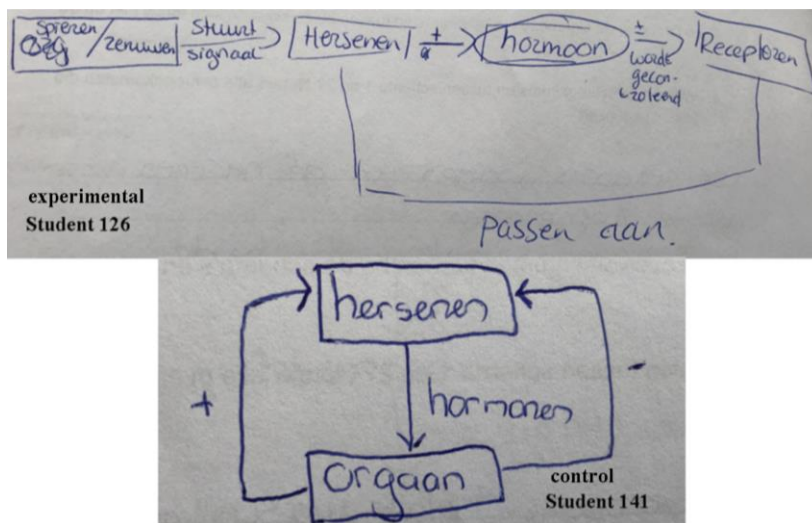 spieren
/zenuwen
stuurt
signaal
Hersenen
+
hormoon
±
wordt
gecon-
troleerd
Receptoren
passen aan.
experimental
Student 126
hersenen
+
hormonen
-
orgaan
control
Student 141